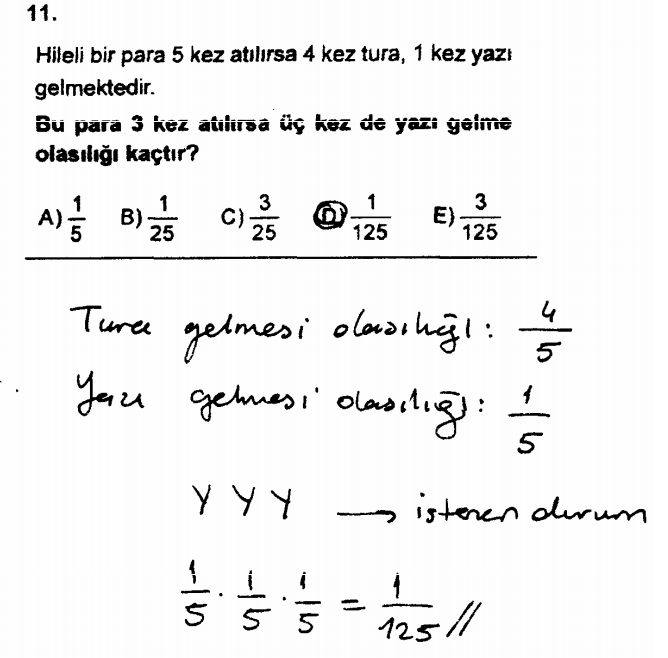 11.
Hileli bir para 5 kez atılırsa 4 kez tura, 1 kez yazı
gelmektedir.
Bu para 3 kez atılırsa üç kez de yazı gelme
olasılığı kaçtır?
A) 1/5 B) 1/25 C) 3/25 D) 1/125 E) 3/125
Tura gelmesi olasılığı: 4/5
Yazı gelmesi olasılığı: 1/5
Y Y Y → istenen durum
1/5 . 1/5 . 1/5 = 1/125 //